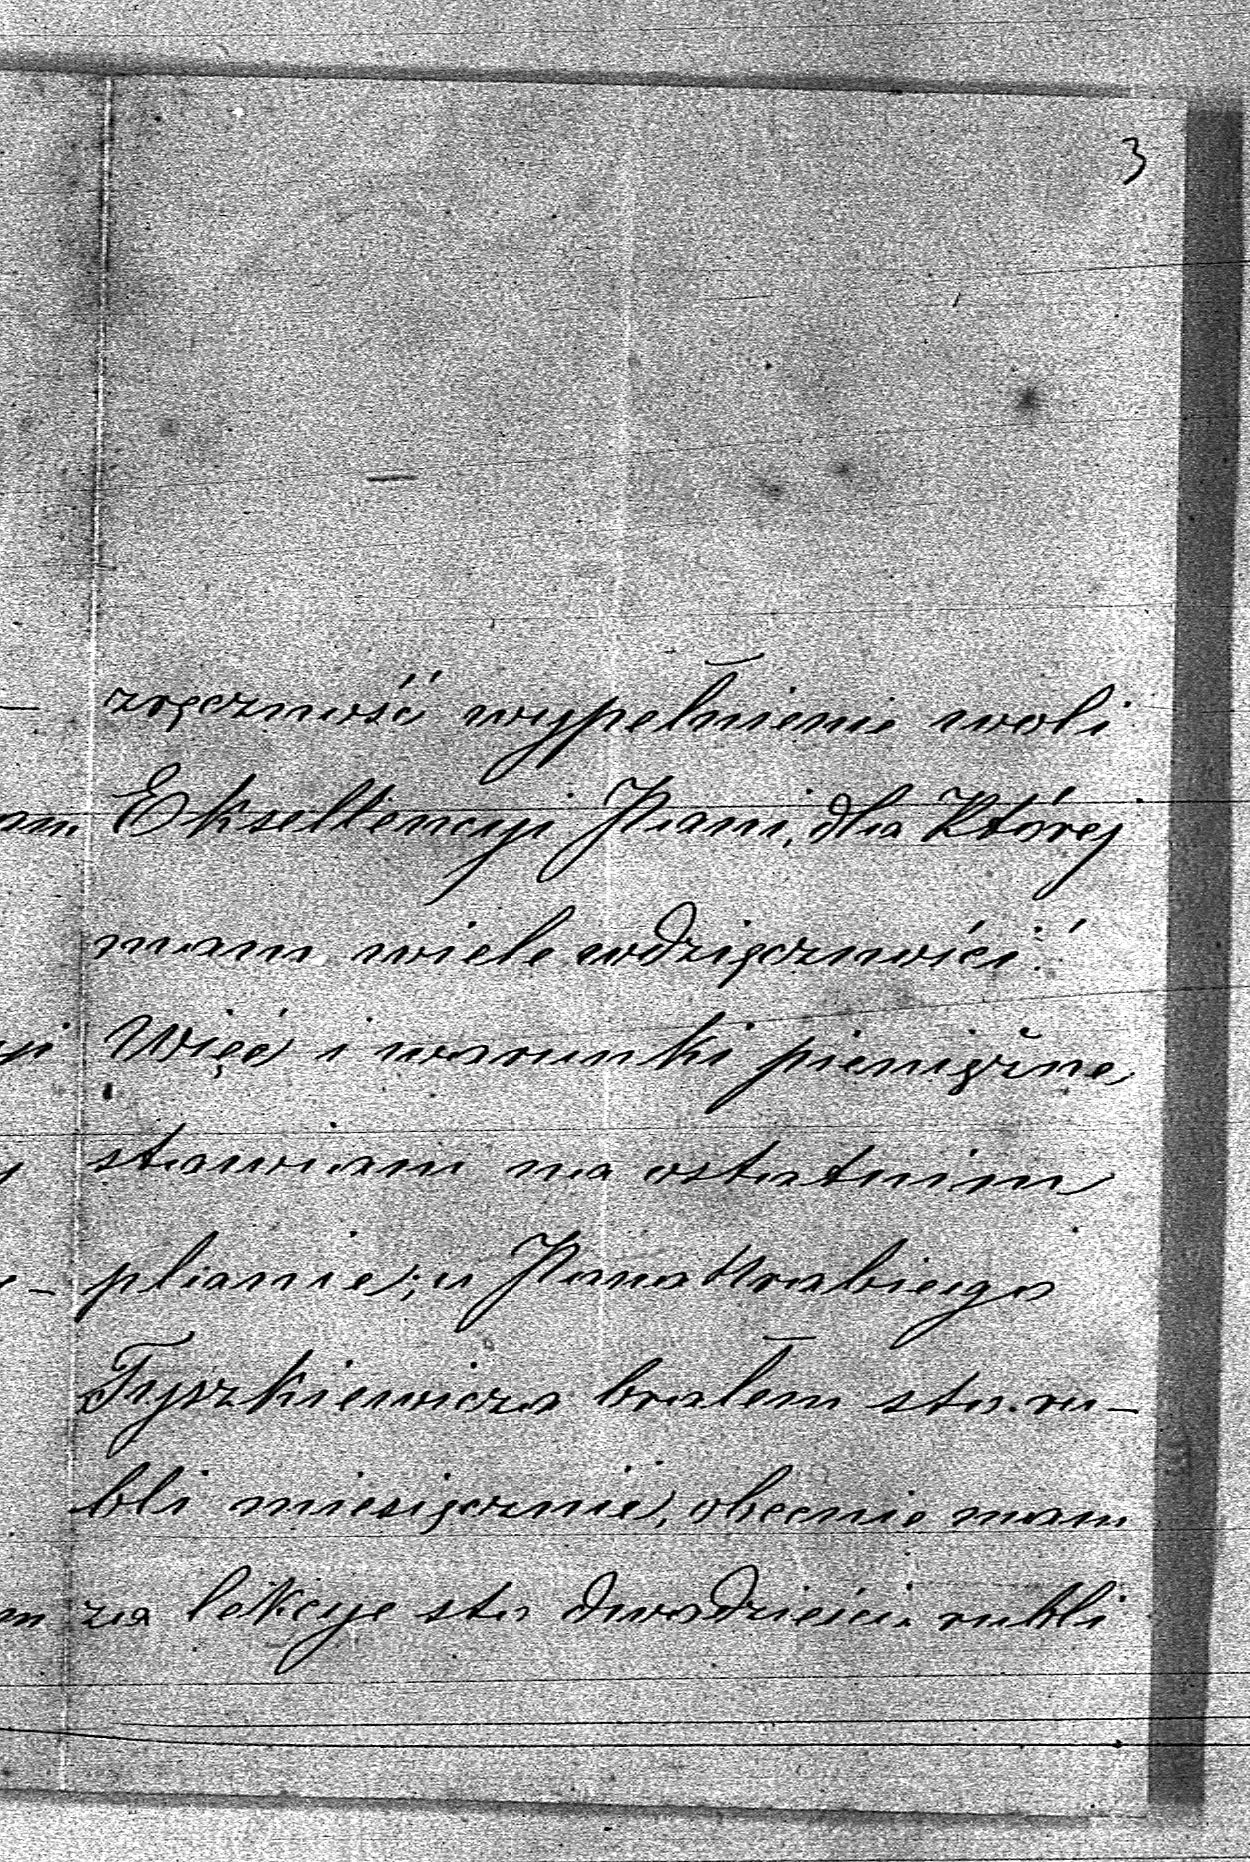 3
zręczność wypełnienie woli
Ekscellencyi Pani, dla Której
mam wiele wdzięczności!
Więc i warunki pieniężne
stawiam na ostatnim
planie; u Pana Hrabiego
Tyszkiewicza brałem sto ru-
bli miesięcznie, obecnie mam
za lekcyje sto dwadzieścia rubli